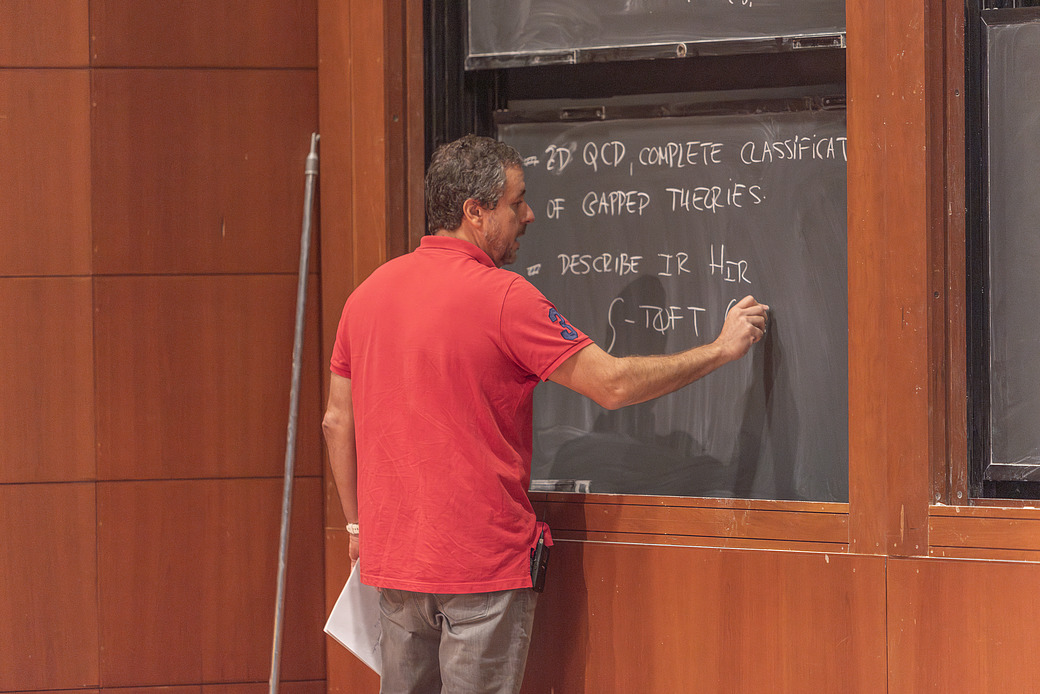 - 2D QCD, COMPLETE CLASSIFICAT
OF GAPPED THEORIES.
- DESCRIBE IR HIR
- TQFT (
3